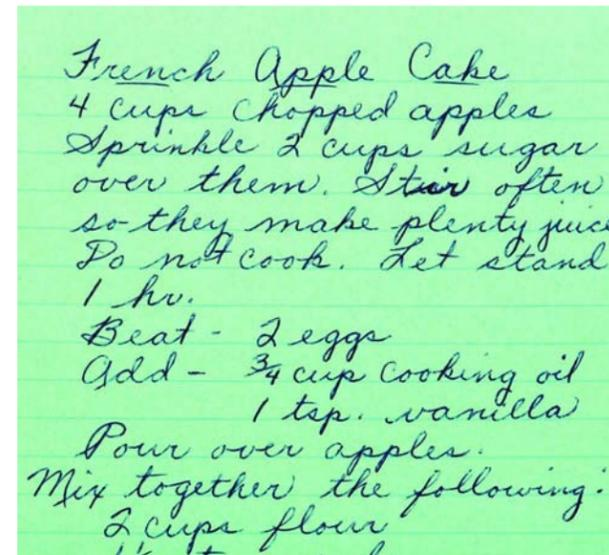 French Apple Cake
4 cups chopped apples
Sprinkle 2 cups sugar
over them. Stir often
so they make plenty juice
Do not cook. Let stand
1 hr.
Beat - 2 eggs
Add - 3/4 cup cooking oil
1 tsp. vanilla
Pour over apples.
Mix together the following:
2 cups flour